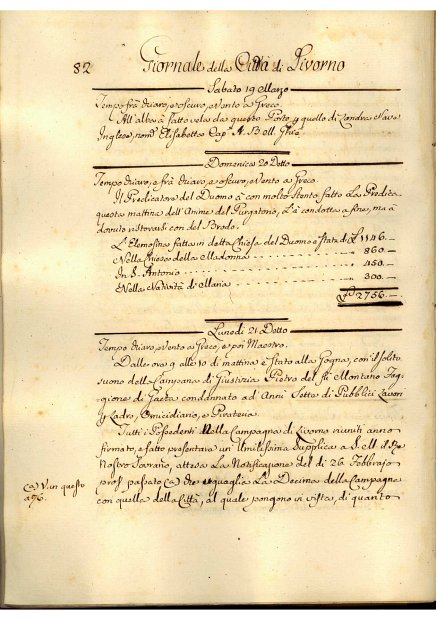 82 Giornale della Città di Livorno
Sabato 19 Marzo
Tempo frà chiaro, e oscuro, e Vento a Greco.
All'alba à fatto vela da questo Porto p quello di Londra Nave
Inglese, nom.ª Elisabetta Cap.º A. Bell
Domenica 20 Detto
Tempo chiaro, e frà chiaro, e oscuro, e Vento a Greco.
Il Predicatore del Duomo à con molto stento fatto La Predica
questa mattina dell'Anime del Purgatorio, L'à condotta a fine, ma à
dovuto ristorarsi con del Brodo.
L'Elemosina fatta in detta Chiesa del Duomo è stata di £ 1146.—
Nella Chiesa della Madonna 860.—
In S. Antonio 450.—
Nella Natività di Maria 300.—
£ 2756.—
Lunedì 21 Detto
Tempo chiaro, e Vento a Greco, e poi Maestro.
Dalle ore 9 alle 10 di mattina è stato alla Gogna, con il solito
suono della Campana di Giustizia Pietro del fù Montano
di Gaeta condannato ad Anni Sette di Pubblici Lavori
p Ladro, Omicidiario, e Pirateria.
Tutti i Possedenti Nella Campagna di Livorno riuniti anno
firmato, e fatto presentare un'Umilissima Supplica a S. M. il Re
Nostro Sovrano, attesa La Notificazione del dì 26 Febbrajo
pros.º passato (a) che eguaglia La Decima della Campagna
con quella della Città, al quale pongono in vista, di quanto
(a) V. in questo
a 76.